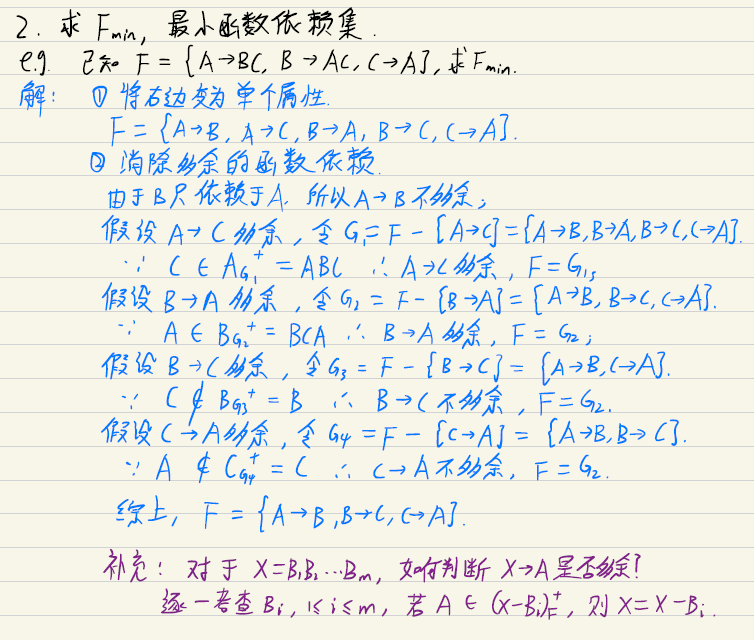 2. 求 Fmin, 最小函数依赖集.
e.g. 已知 F = {A→BC, B→AC, C→A}, 求Fmin.
解: ① 将右边变为单个属性.
F = {A→B, A→C, B→A, B→C, C→A}.
② 消除多余的函数依赖.
由于B只依赖于A, 所以A→B不多余;
假设A→C多余, 令G₁ = F - {A→C} = {A→B, B→A, B→C, C→A}.
∵ C ∈ A_{G₁}⁺ = ABC ∴ A→C多余, F = G₁;
假设B→A多余, 令G₂ = F - {B→A} = {A→B, B→C, C→A}.
∵ A ∈ B_{G₂}⁺ = BCA ∴ B→A多余, F = G₂;
假设B→C多余, 令G₃ = F - {B→C} = {A→B, C→A}.
∵ C ∉ B_{G₃}⁺ = B ∴ B→C不多余, F = G₂.
假设C→A多余, 令G₄ = F - {C→A} = {A→B, B→C}.
∵ A ∉ C_{G₄}⁺ = C ∴ C→A不多余, F = G₂.
综上, F = {A→B, B→C, C→A}.
补充: 对于X=B₁B₂…Bm, 如何判断X→A是否多余?
逐一考查Bi, 1≤i≤m, 若A ∈ (X-Bi)_F⁺, 则X = X-Bi.